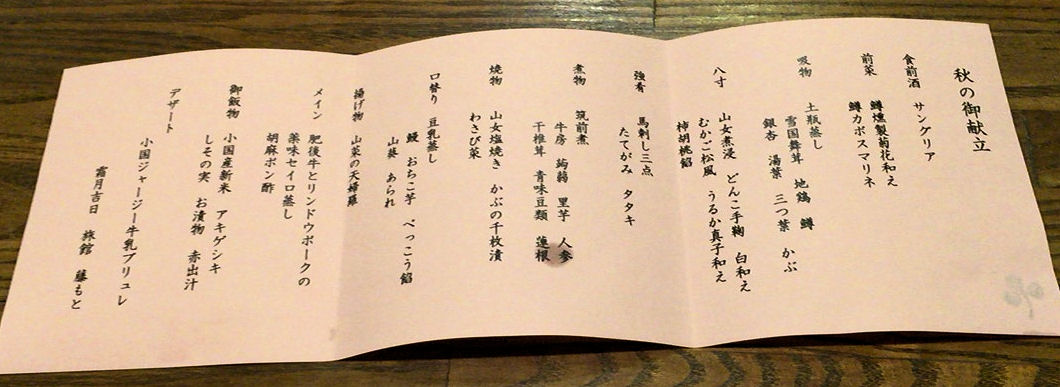 秋の御献立
食前酒 サングリア
前菜 鱒燻製菊花和え
鱒カボスマリネ
吸物 土瓶蒸し
雪国舞茸 地鶏 鱒
銀杏 湯葉 三つ葉 かぶ
八寸 山女煮浸 どんこ手鞠 白和え
むかご松風 うるか真子和え
柿胡桃餡
強肴 馬刺し三点
たてがみ タタキ
煮物 筑前煮
牛房 蒟蒻 里芋 人参
干椎茸 青味豆類 蓮根
焼物 山女塩焼き かぶの千枚漬
わさび菜
口替り 豆乳蒸し
鰻 おちこ芋 べっこう餡
山葵 あられ
揚げ物 山菜の天婦羅
メイン 肥後牛とリンドウポークの
薬味セイロ蒸し
胡麻ポン酢
御飯物 小国産新米 アキゲシキ
しその実 お漬物 赤出汁
デザート
小国ジャージー牛乳ブリュレ
霜月吉日 旅館 藤もと